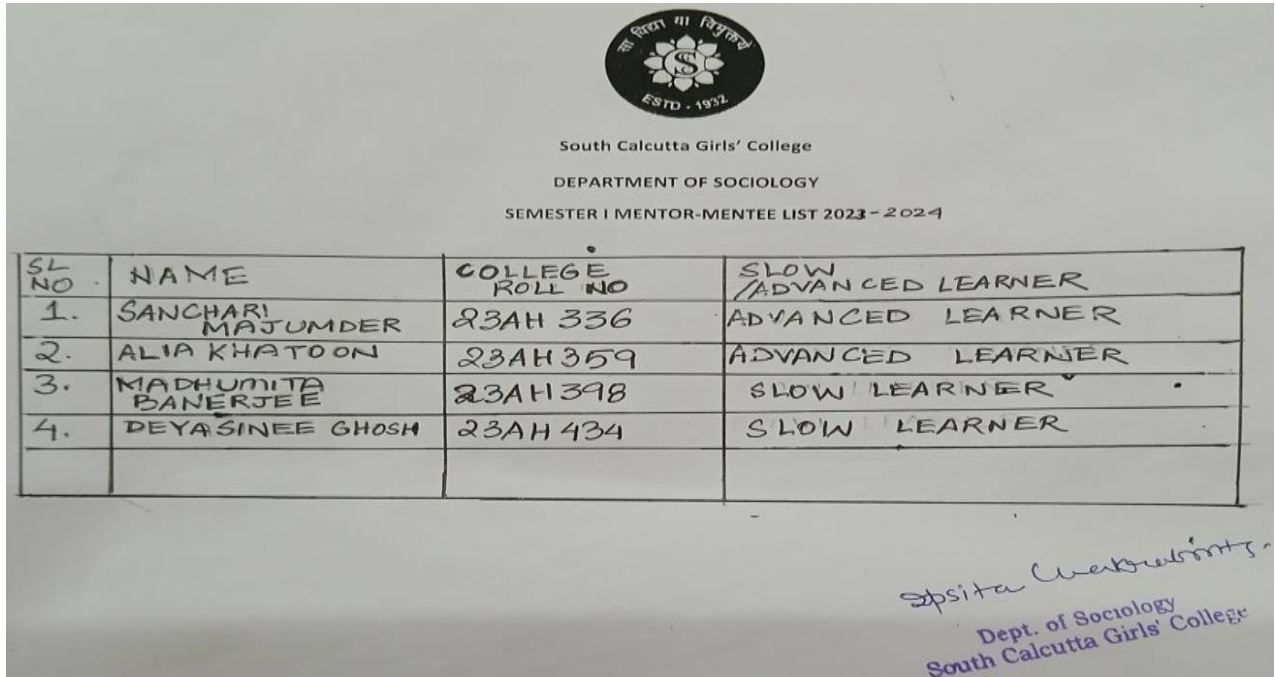 सा विद्या या विमुक्तये
S
ESTD - 1932
South Calcutta Girls' College
DEPARTMENT OF SOCIOLOGY
SEMESTER I MENTOR-MENTEE LIST 2023-2024
SL NO. NAME COLLEGE ROLL NO SLOW /ADVANCED LEARNER
1. SANCHARI MAJUMDER 23AH 336 ADVANCED LEARNER
2. ALIA KHATOON 23AH359 ADVANCED LEARNER
3. MADHUMITA BANERJEE 23AH398 SLOW LEARNER
4. DEYASINEE GHOSH 23AH434 SLOW LEARNER
Ipsita Chakraborty.
Dept. of Sociology
South Calcutta Girls' College